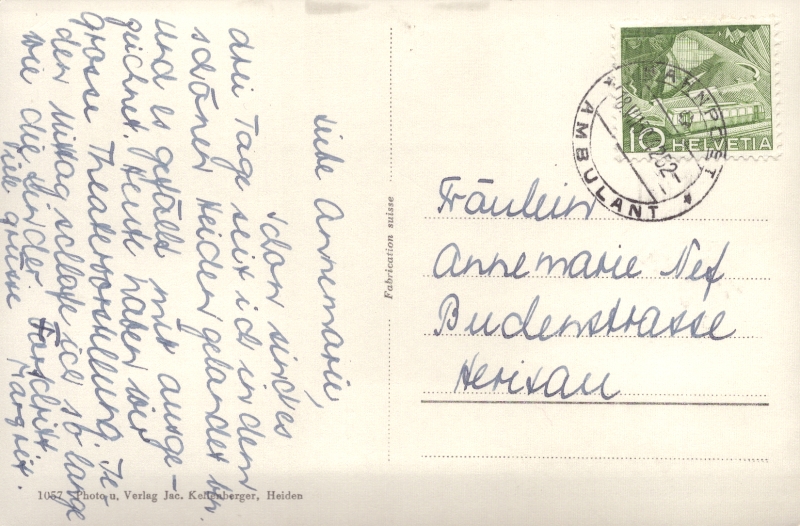 Liebe Annemarie,
Schon sind es
drei Tage seit ich in dem
schönen Heiden gelandet bin
und es gefällt mir ausge-
zeichnet. Heute haben wir
grosse Theatervorstellung. In
der Mittag schlafe ich so lange
wie die Kinder.
Viele grüsse Margrit.
Fabrication suisse
1057 Photo u. Verlag Jac. Kellenberger, Heiden
10 HELVETIA
BAHNPOST
AMBULANT
Fräulein
Annemarie Nef
Budenstrasse
Herisau